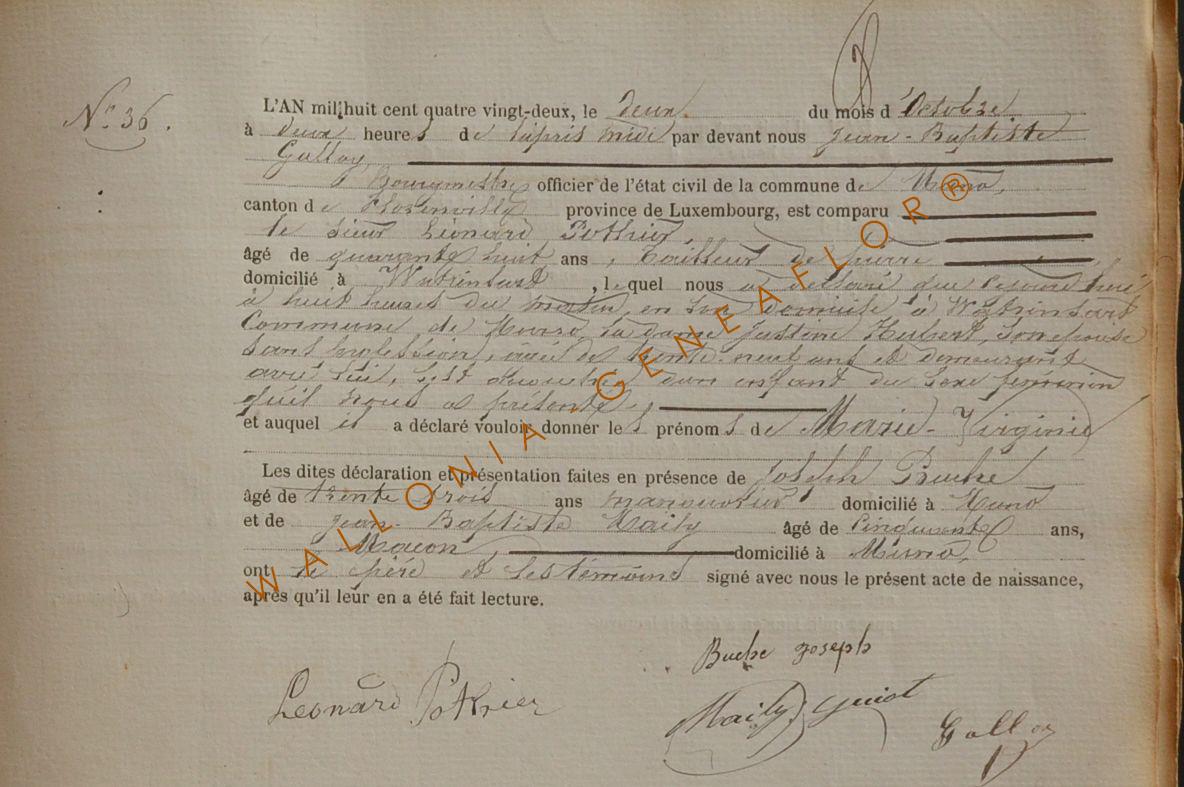 N° 36.
L'AN mil huit cent quatre vingt-deux, le deux du mois d'Octobre
à deux heures de l'après midi par devant nous Jean-Baptiste
Galloy
Bourgmestre officier de l'état civil de la commune de Muno,
canton de Florenville province de Luxembourg, est comparu
le sieur Léonard Pothier,
âgé de quarante huit ans, tailleur de pierre
domicilié à Watrinsart, lequel nous a déclaré que
à huit heures du matin, en son domicile à Watrinsart
Commune de Muno, la dame Justine Hubert, son épouse
sans profession, âgée de trente-neuf ans et demeurant
avec lui, est accouchée d'un enfant du sexe féminin
qu'il nous a présenté,
et auquel il a déclaré vouloir donner les prénoms de Marie-Virginie
Les dites déclaration et présentation faites en présence de Joseph
âgé de trente trois ans manouvrier domicilié à Muno
et de Jean-Baptiste Maily âgé de cinquante ans,
Maçon, domicilié à Muno,
ont le père et les témoins signé avec nous le présent acte de naissance,
après qu'il leur en a été fait lecture.
Buche Joseph
Leonard Pothier
Maily
Galloy
WALLONIA GENEAFLOR®